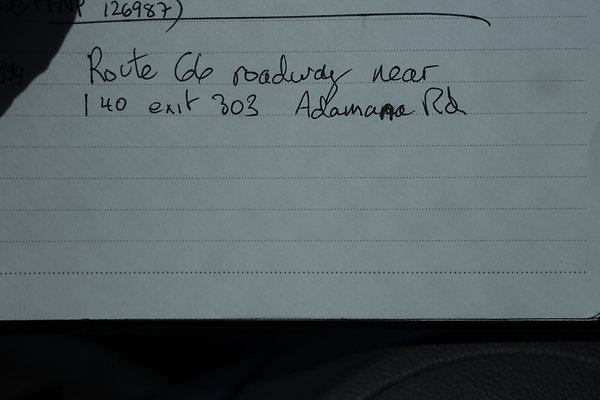 FNP 126987)
Route 66 roadway near
I 40 exit 303 Adamana Rd